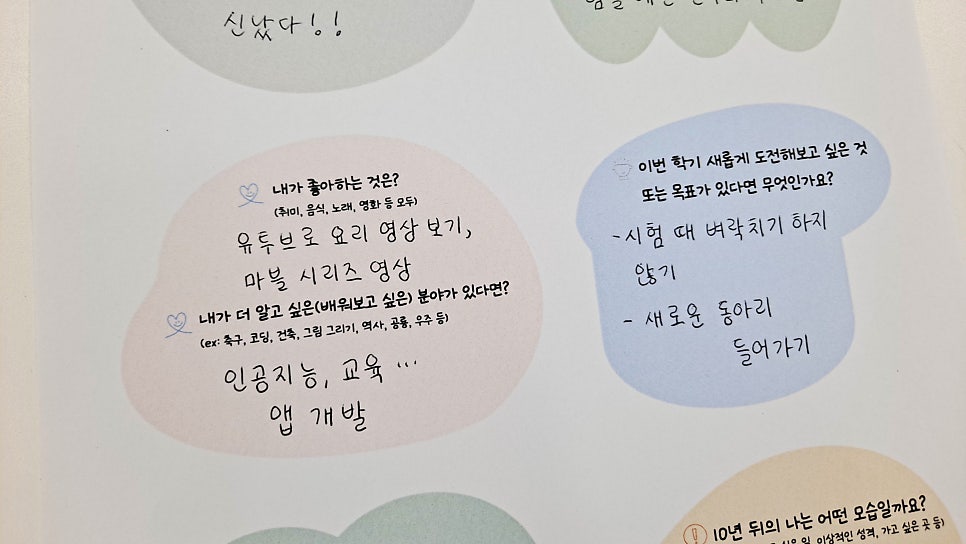 신났다!!
내가 좋아하는 것은?
(취미, 음식, 노래, 영화 등 모두)
유투브로 요리 영상 보기,
마블 시리즈 영상
내가 더 알고 싶은(배워보고 싶은) 분야가 있다면?
(ex: 축구, 코딩, 건축, 그림 그리기, 역사, 공룡, 우주 등)
인공지능, 교육 ...
앱 개발
이번 학기 새롭게 도전해보고 싶은 것
또는 목표가 있다면 무엇인가요?
- 시험 때 벼락치기 하지
않기
- 새로운 동아리
들어가기
10년 뒤의 나는 어떤 모습일까요?
이상적인 성격, 가고 싶은 곳 등)